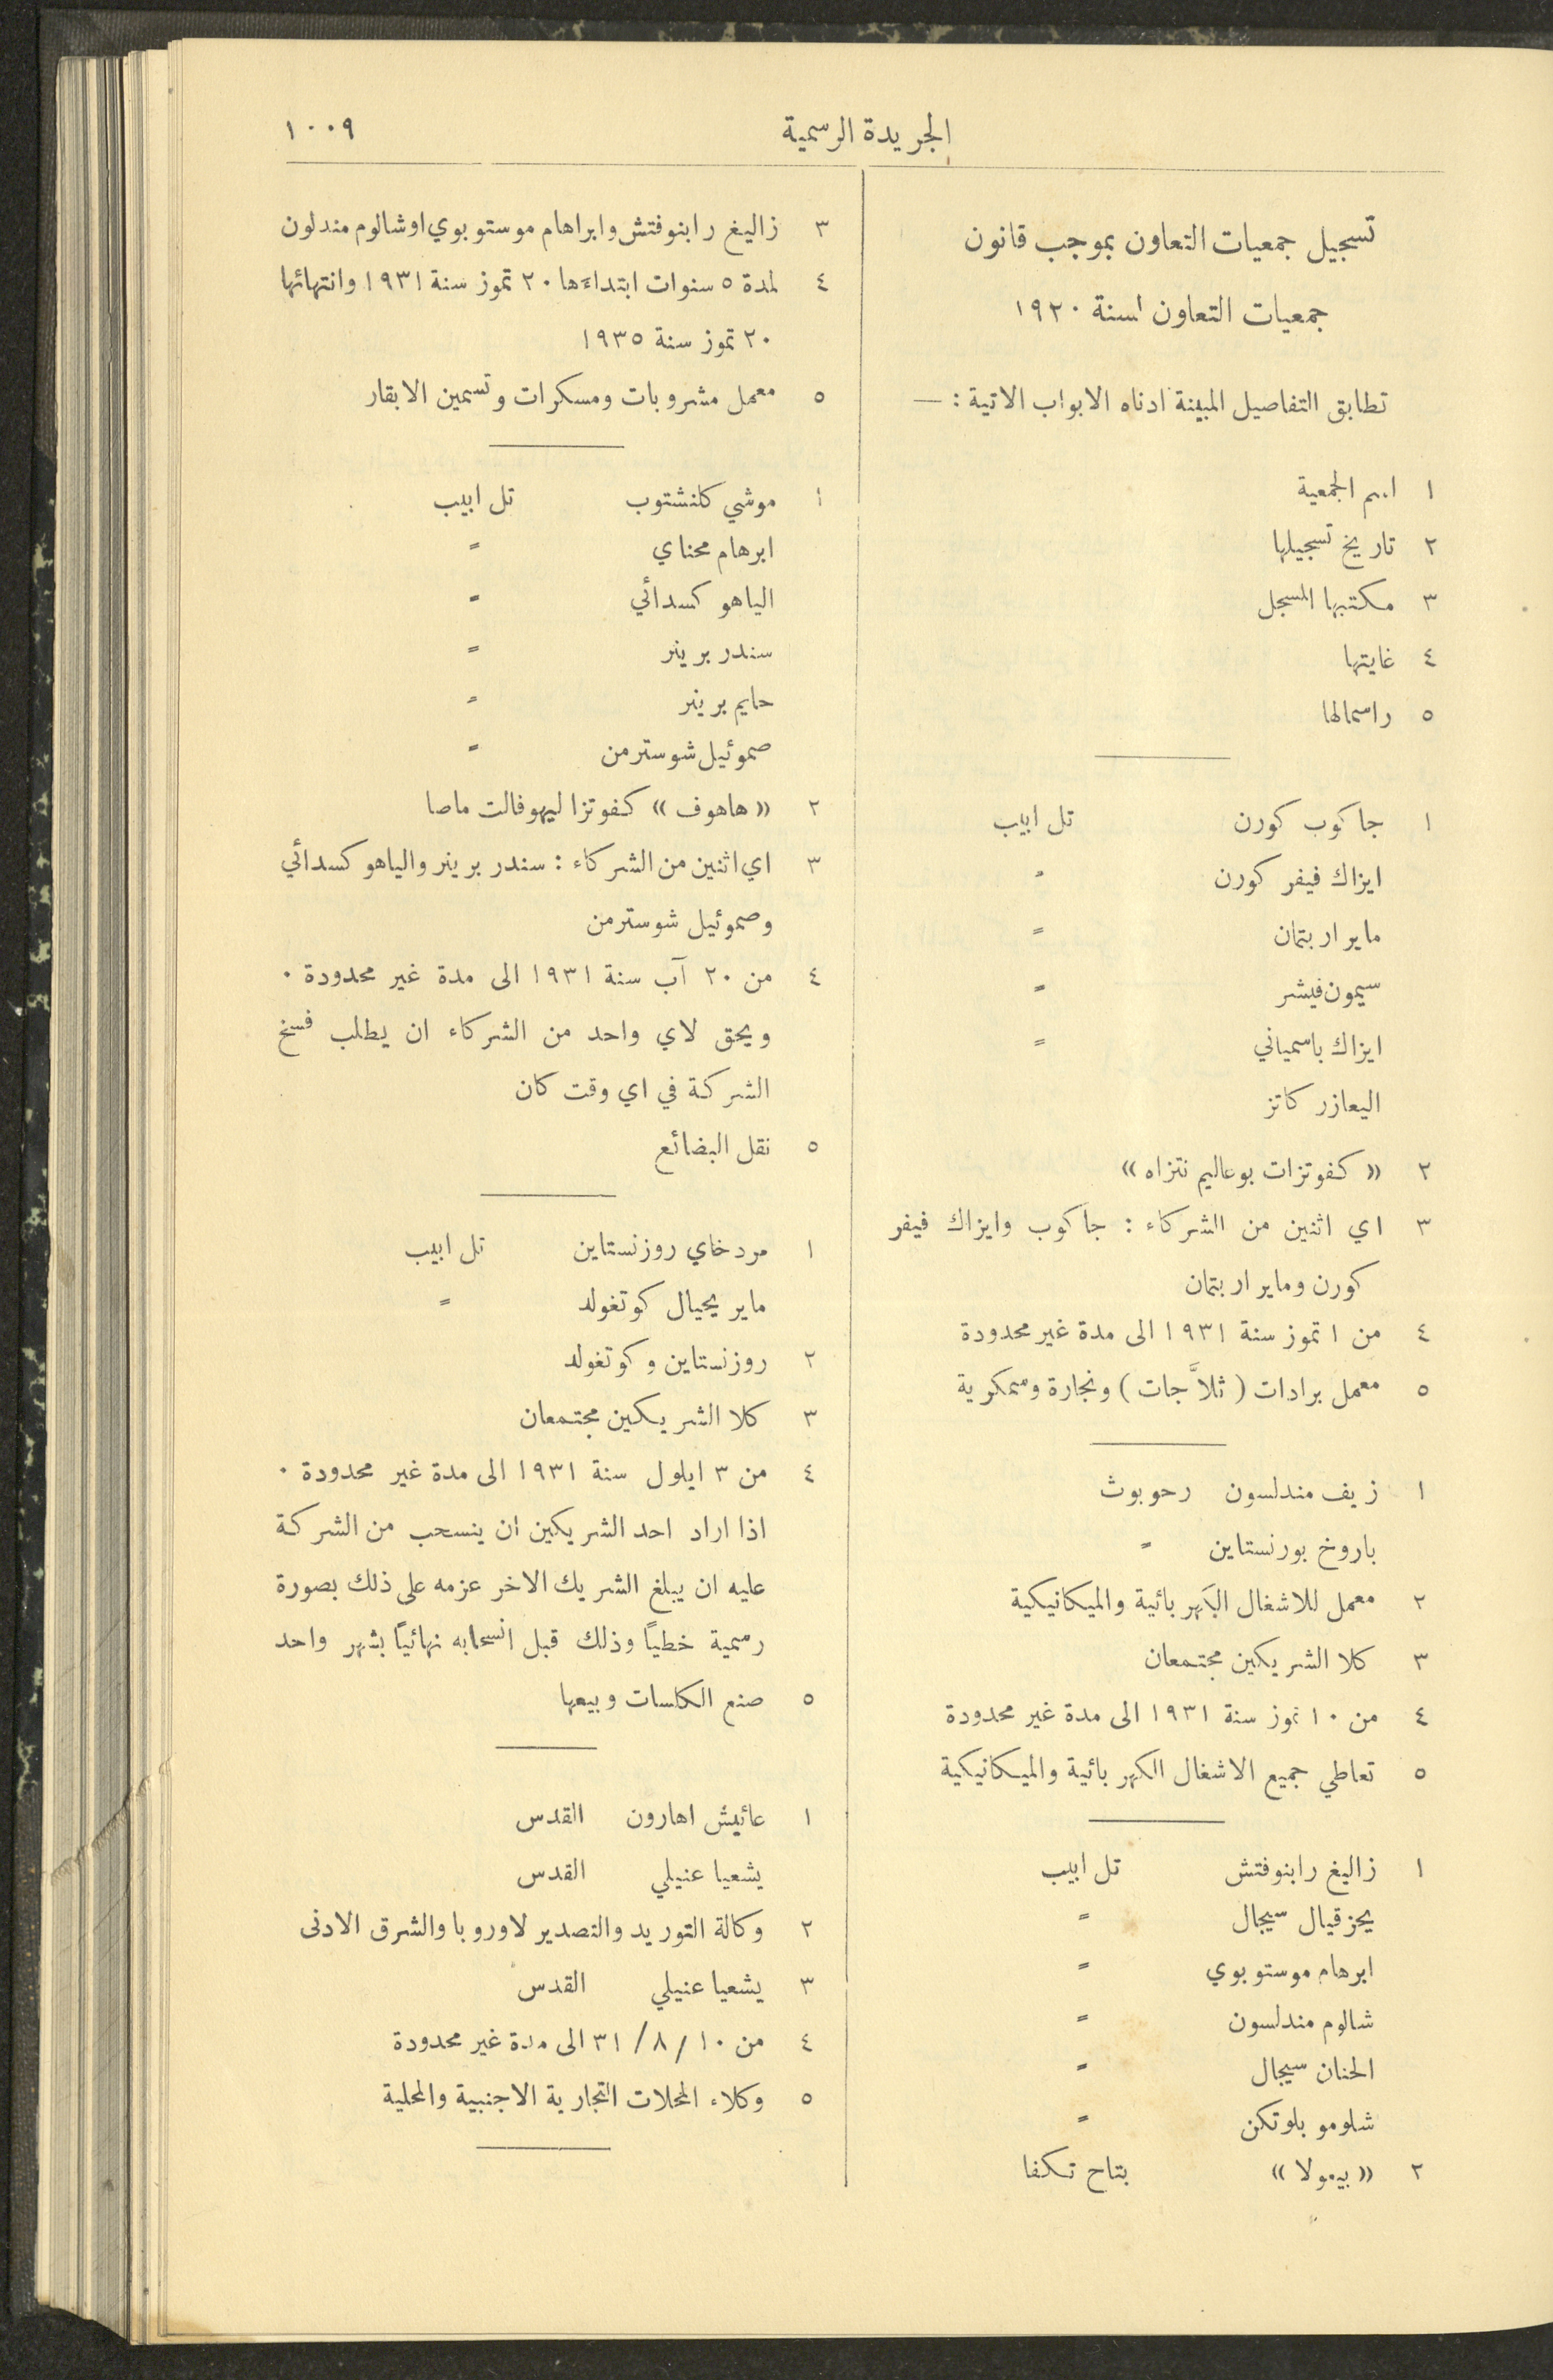 الجريدة الرسمية
١٠٠٩
تسجيل جمعيات التعاون بموجب قانون
جمعيات التعاون لسنة ١٩٢٠
تطابق التفاصيل المبينة ادناه الابواب الاتية : —
١ اسم الجمعية
٢ تاريخ تسجيلها
٣ مكتبها المسجل
٤ غايتها
٥ راسمالها
١ جاكوب كورن تل ابيب
ايزاك فيفر كورن "
ماير اربتمان "
سيمون فيشر "
ايزاك باسمياني "
اليعازر كاتز
٢ « كفوتزات بوعاليم نتزاه »
٣ اي اثنين من الشركاء : جاكوب وايزاك فيفر
كورن وماير اربتمان
٤ من ١ تموز سنة ١٩٣١ الى مدة غير محدودة
٥ معمل برادات ( ثلاَّجات ) ونجارة وسمكرية
١ زيف مندلسون رحوبوث
باروخ بورنستاين "
٢ معمل للاشغال الكهربائية والميكانيكية
٣ كلا الشريكين مجتمعان
٤ من ١٠ تموز سنة ١٩٣١ الى مدة غير محدودة
٥ تعاطي جميع الاشغال الكهربائية والميكانيكية
١ زاليغ رابنوفتش تل ابيب
يحزقيال سيجال "
ابرهام موستوبوي "
شالوم مندلسون "
الحنان سيجال "
شلومو بلوتكن "
٢ « بيمولا » بتاح تكفا
٣ زاليغ رابنوفتش وابراهام موستوبوي اوشالوم مندلون
٤ لمدة ٥ سنوات ابتداءها ٢٠ تموز سنة ١٩٣١ وانتهائها
٢٠ تموز سنة ١٩٣٥
٥ معمل مشروبات ومسكرات وتسمين الابقار
١ موشي كلنشتوب تل ابيب
ابرهام محناي "
الياهو كسدائي "
سندر برينر "
حايم برينر "
صموئيل شوسترمن "
٢ « هاهوف » كفوتزا ليهوفالت ماصا
٣ اي اثنين من الشركاء : سندر برينر والياهو كسدائي
وصموئيل شوسترمن
٤ من ٢٠ آب سنة ١٩٣١ الى مدة غير محدودة ٠
ويحق لاي واحد من الشركاء ان يطلب فسخ
الشركة في اي وقت كان
٥ نقل البضائع
١ مردخاي روزنستاين تل ابيب
ماير يحيال كوتغولد "
٢ روزنستاين وكوتغولد
٣ كلا الشريكين مجتمعان
٤ من ٣ ايلول سنة ١٩٣١ الى مدة غير محدودة ٠
اذا اراد احد الشريكين ان ينسحب من الشركة
عليه ان يبلغ الشريك الاخر عزمه على ذلك بصورة
رسمية خطياً وذلك قبل انسحابه نهائياً بشهر واحد
٥ صنع الكلسات وبيعها
١ عائيش اهارون القدس
يشعيا عنيلي القدس
٢ وكالة التوريد والتصدير لاوروبا والشرق الادنى
٣ يشعيا عنيلي القدس
٤ من ١٠ / ٨ / ٣١ الى مدة غير محدودة
٥ وكلاء المحلات التجارية الاجنبية والمحلية